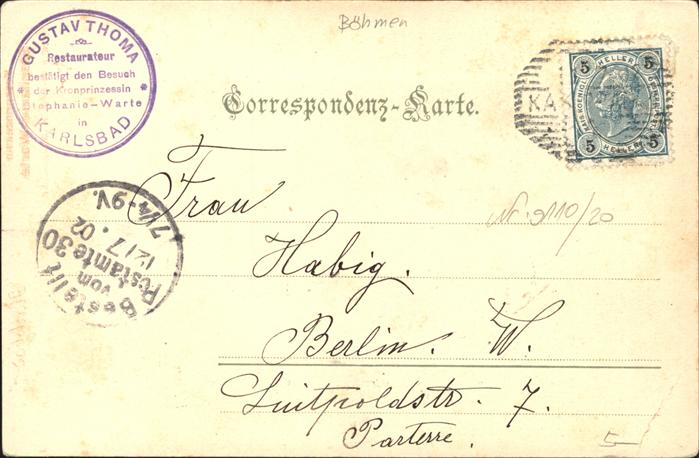 Böhmen
GUSTAV THOMA
Restaurateur
bestätigt den Besuch
der Kronprinzessin
Stephanie-Warte
in
KARLSBAD
5 HELLER 5
5 HELLER 5
Correspondenz-Karte.
Bestellt
vom
Postamte 30
12/7. 02
7 1/4-9V.
Nr. 9110/20
Frau
Habig.
Berlin. W.
Luitpoldstr. 7.
Parterre.
5-